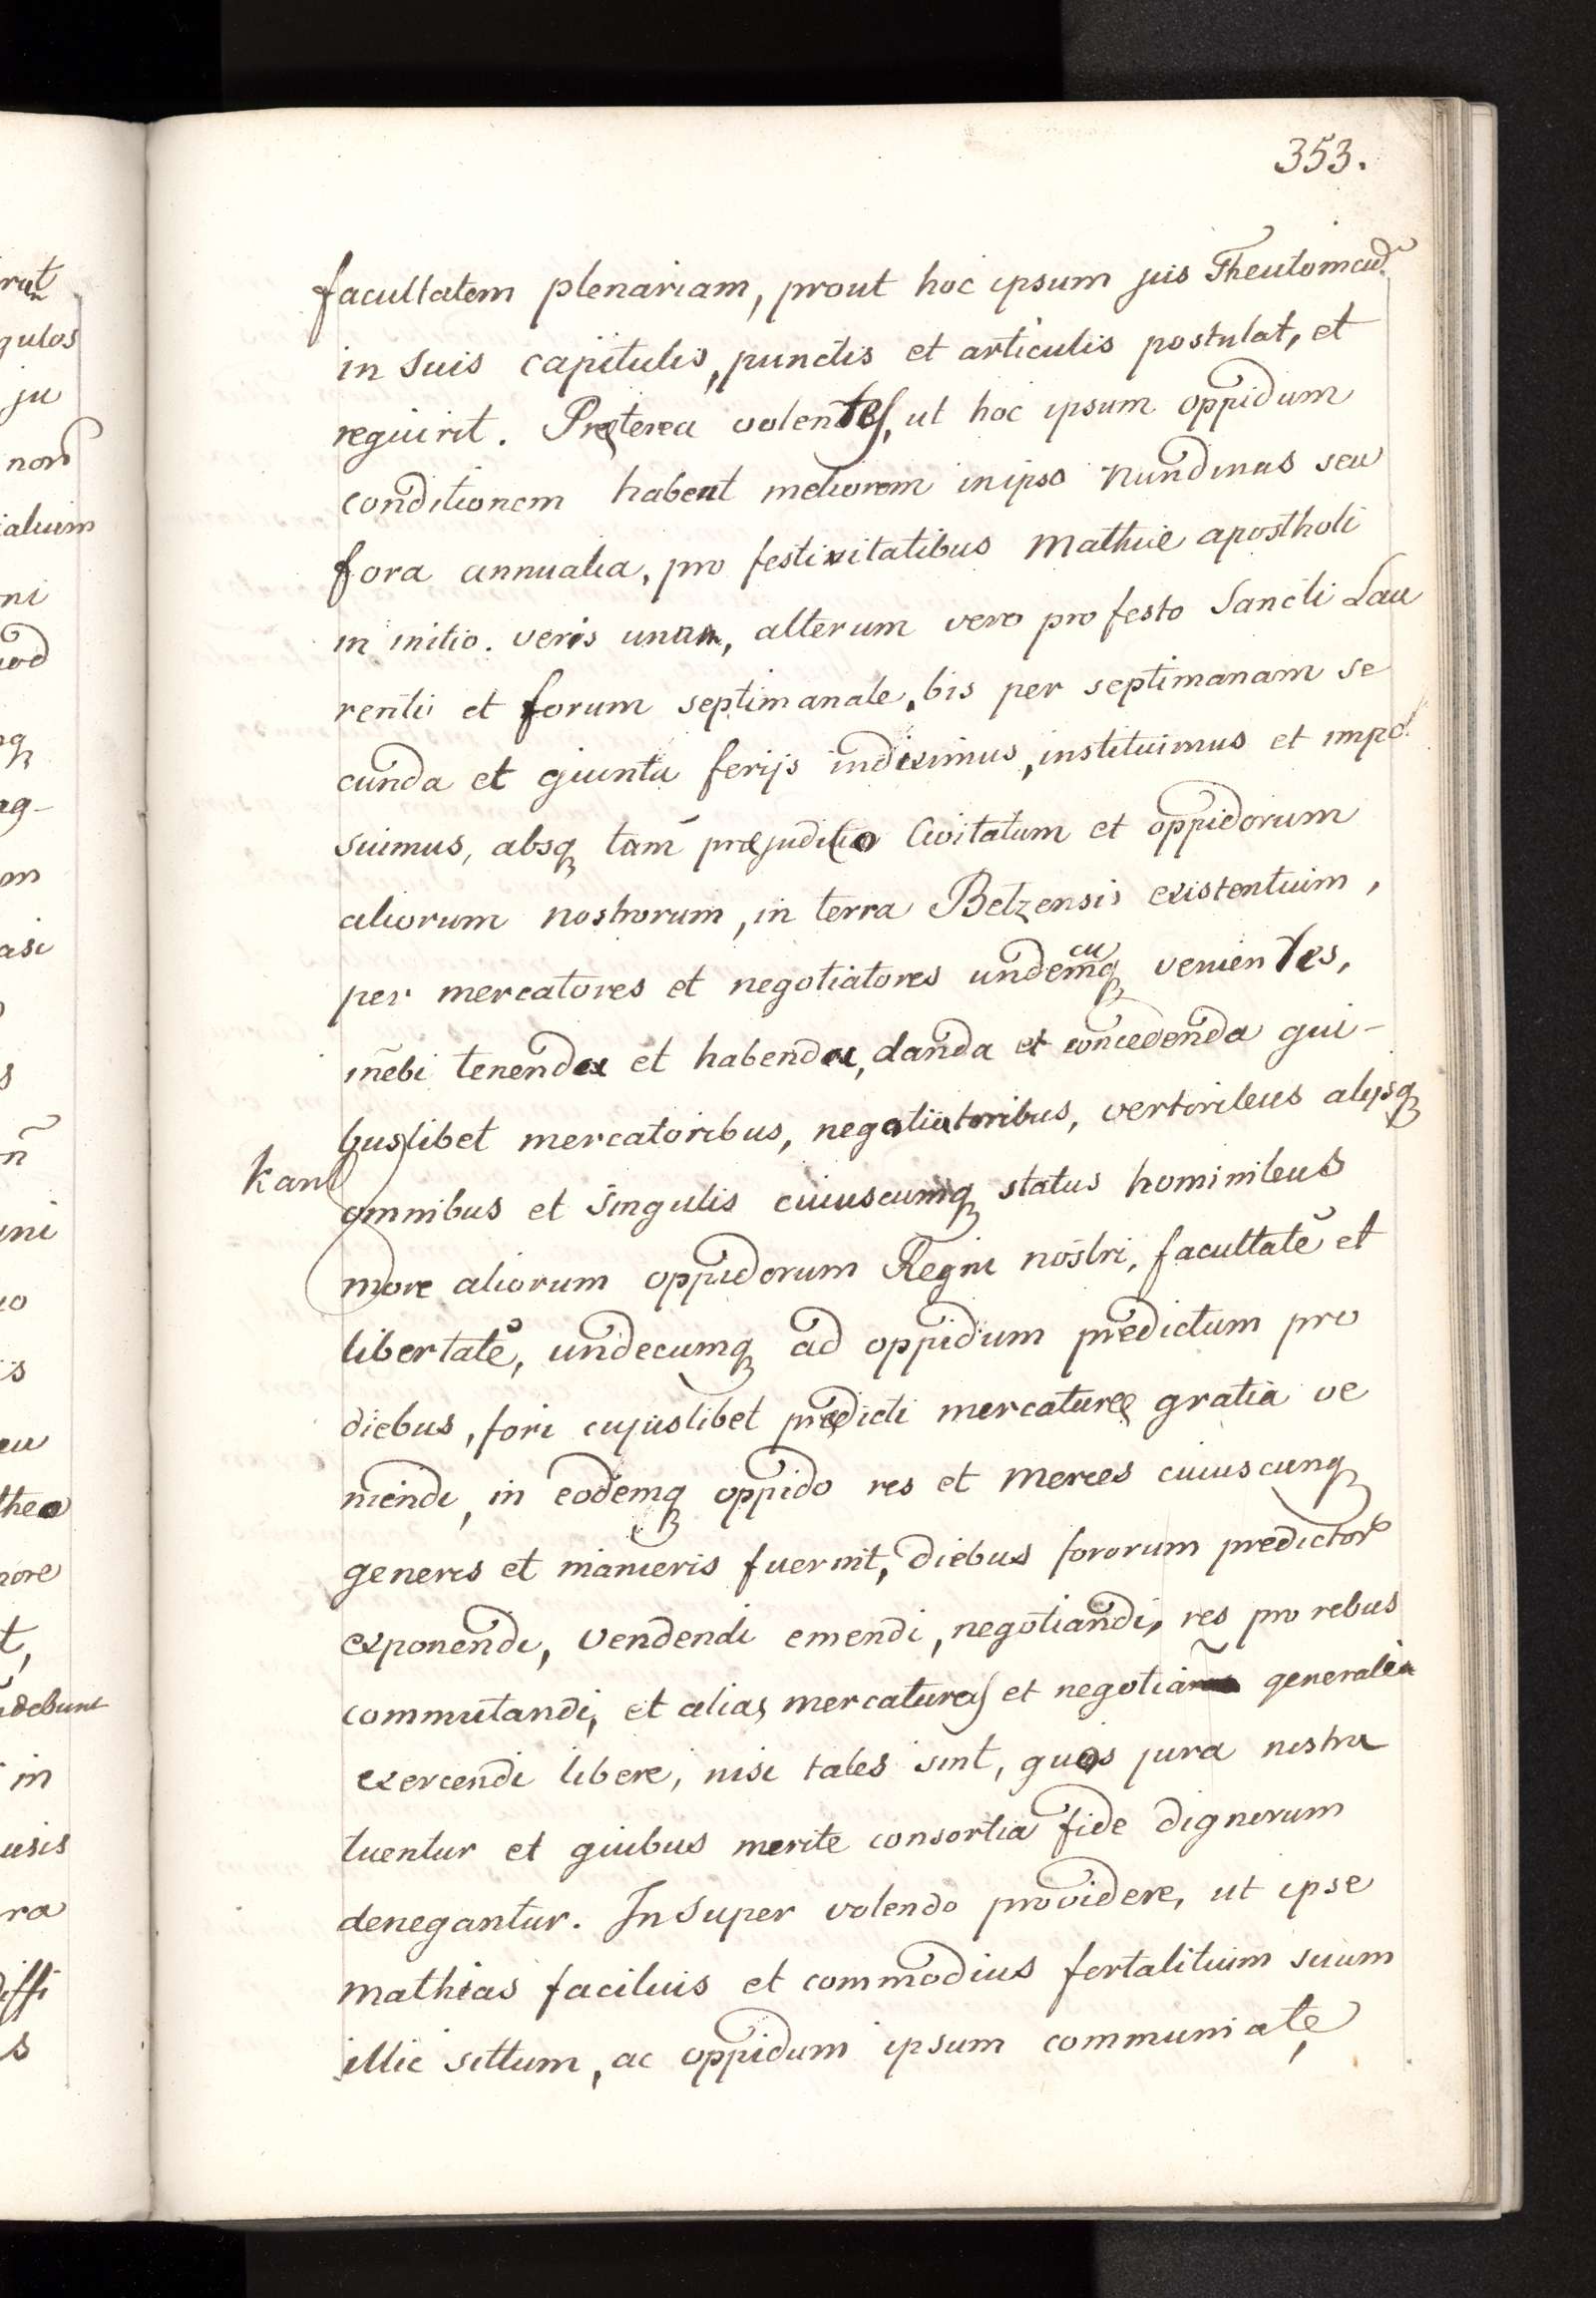 353.
facultatem plenariam, prout hoc ipsum jus Theutonicũ
in suis capitulis, punctis et articulis postulat, et
reguirit. Pręterea volentes, ut hoc ipsum oppidum
conditionem habeat meliorem in ipso nundinas seu
fora annualia, pro festivitatibus Mathiæ apostholi
in initio. veris unum, alterum vero pro festo Sancti Lau
rentii et forum septimanale, bis per septimanam se
cunda et guinta ferijs indiximus, instituimus et impo
suimus, absq tam̃ præjuditio Civitatum et oppidorum
aliorum nostrorum, in terra Betzensis existentium,
per mercatores et negotiatores undecumq venientes,
inẽbi tenenda et habenda, danda et concedenda gui-
buslibet mercatoribus, negotiatoribus, vectoribus alijsq
kan
omnibus et singulis cuiuscumq status hominibus
more aliorum oppidorum Regni nostri, facultatẽ et
libertatẽ, undecumq ad oppidum predictum pro
diebus, fori cujuslibet prędicti mercaturę gratia ve
niendi, in eodemq oppido res et merces cuiuscunq
generis et manieris fuerint, diebus fororum predictor̃
exponendi, vendendi emendi, negotiandi, res pro rebus
commutandi, et alias mercaturas et negotia generalia
exercendi libere, nisi tales sint, guos jura nostra
tuentur et guibus merite consortia fide dignorum
denegantur. Insuper volendo providere, ut ipse
Mathias facilius et commodius fortalitium suum
illic sittum, ac oppidum ipsum communiatę
rut
gulos
ju
non
ialium
ni
iod
ag-
m
asi
s
ñ
uni
uo
is
eu
thea
nore
t,
ndebunt
in
usis
ra
diffi
s